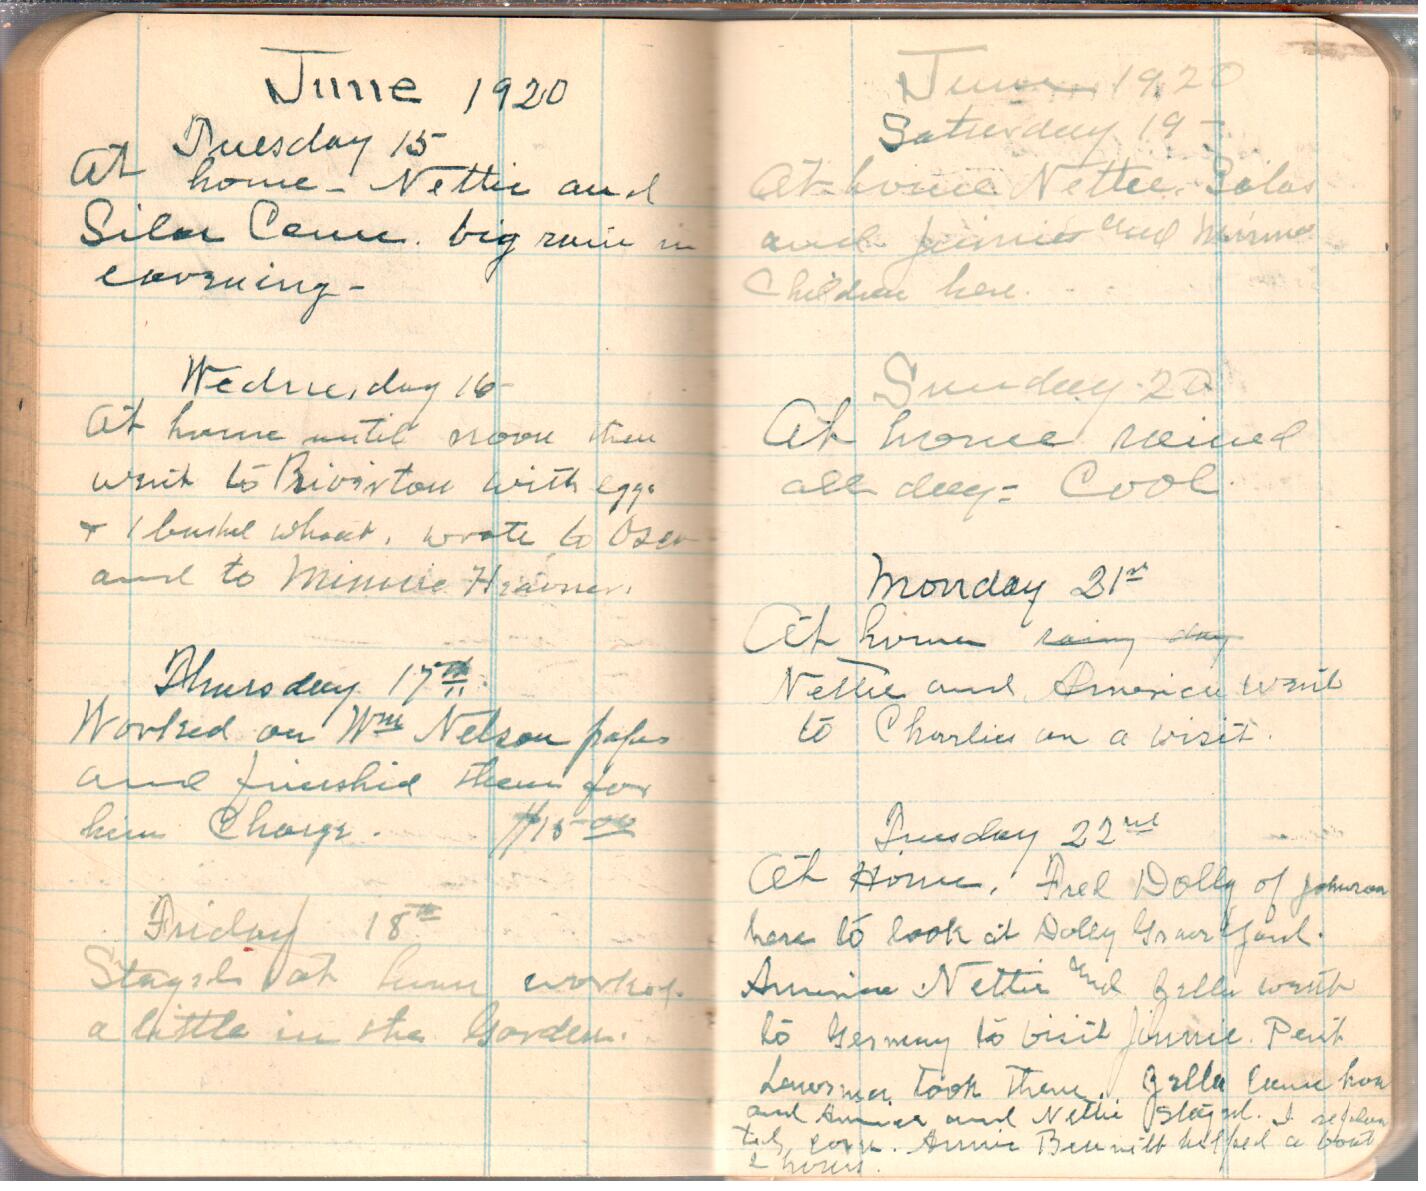 June 1920
Tuesday 15
At home - Nettie and
Silas Came. big rain in
evening -
Wednesday 16
At home until noon then
went to Riverton with eggs
& 1 bushel wheat. wrote to
and to Minnie
Thursday 17th
Worked on Wm Nelson papers
and finished them for
him Charge. $15.00
Friday 18th
Stayed at home worked
a little in the Garden.
June 1920
Saturday 19 -
At home Nettie, Silas
and and
Children here.
Sunday 20
At home rained
all day - Cool
Monday 21st
At home rainy day
Nettie and America went
to Charlies on a visit.
Tuesday 22nd
At Home. Fred Dolly of Johnson
here to look at Dolly Grave Yard.
Nettie and Zella went
to Germany to visit Jinnie.
took them. Zella came home
and and Nettie Stayed. I replan
ted corn. Annie Bennett helped about
2 hours.